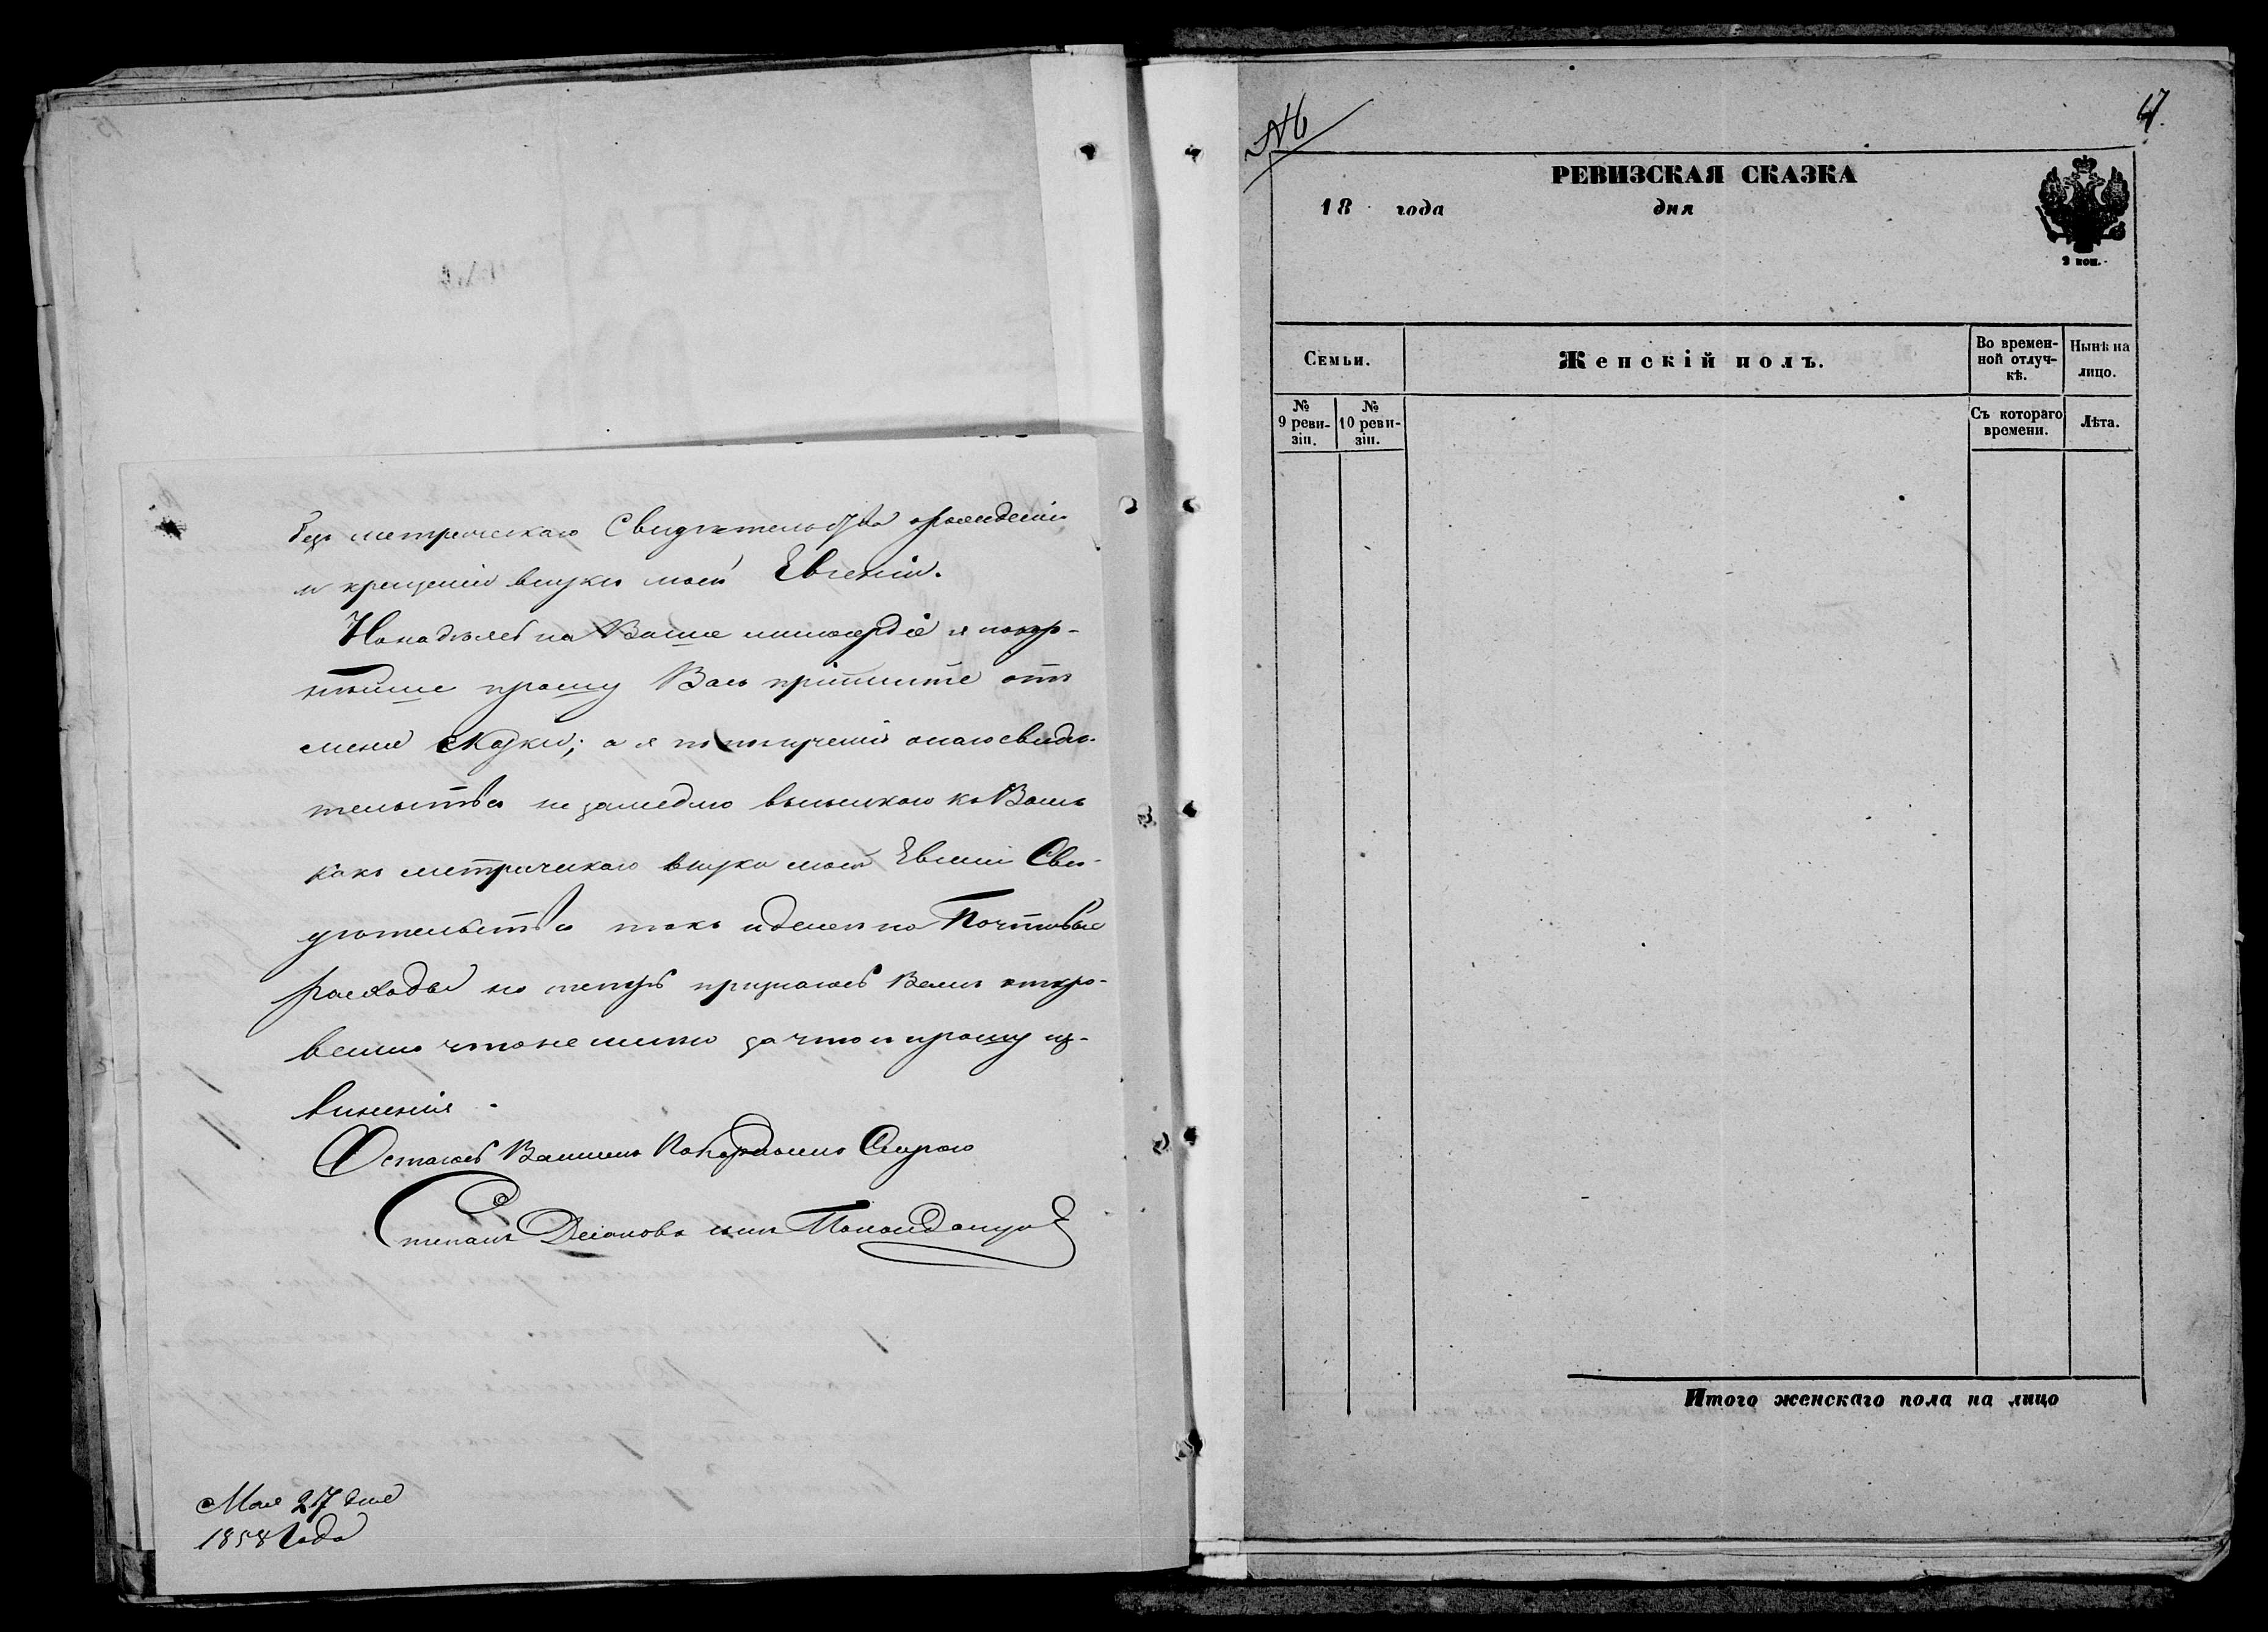 безъ метрическаго Свидѣтельства о рожденіи
и крещеніи внуки моей Евгеніи.
На Ваше милосердіе я покор-
нѣйше прошу Васъ примите отъ
меня скаски; а я по полученіи онаго свидѣ-
тельства не замедлю выслать къ Вамъ
какъ метрическаго внуки моей Евгеніи Сви-
дѣтельства такъ и денегъ на Почтовые
расходы но теперь признаюсь Вамъ откро-
венно что не имѣю за что и прошу из-
виненія.
Остаюсь Вашимъ Покорнымъ Слугою
Степанъ сынъ
Мая 27 дня
1858 Года
№
17.
РЕВИЗСКАЯ СКАЗКА
18 года дня
2 коп.
Семьи.
Женскій полъ.
Во времен-
ной отлуч-
кѣ.
Нынѣ на
лицо.
№
9 реви-
зіи.
№
10 реви-
зіи.
Съ котораго
времени.
Лѣта.
Итого женскаго пола на лицо